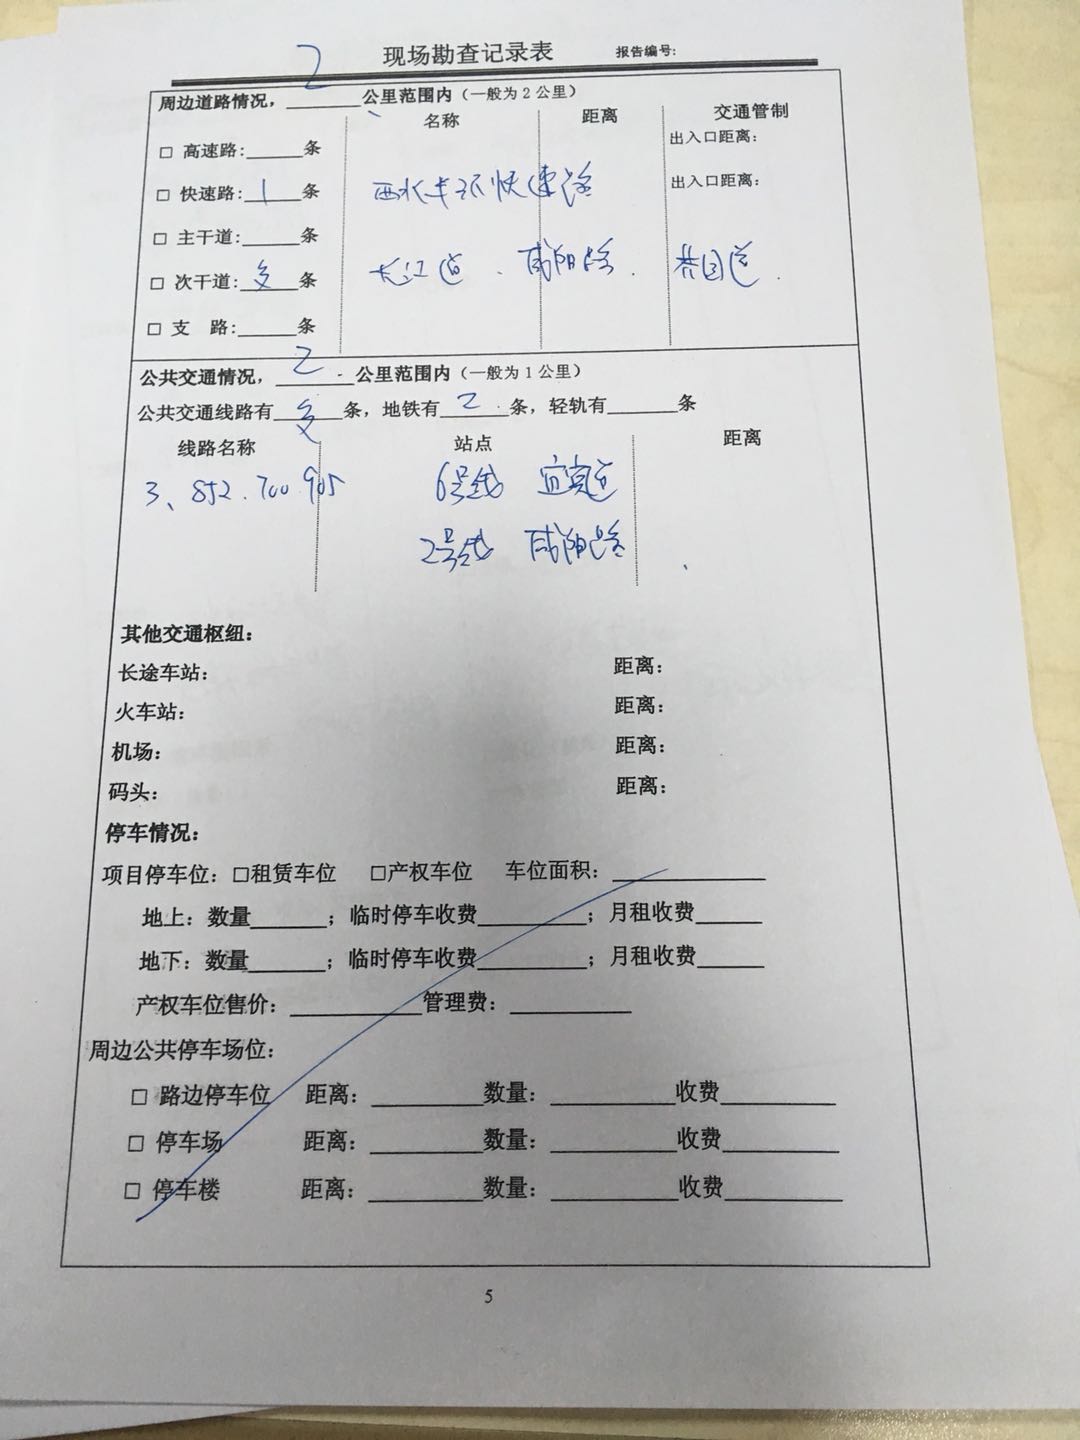 现场勘查记录表 报告编号:
周边道路情况，2公里范围内（一般为2公里）
名称 距离 交通管制
□ 高速路:______条 出入口距离:
□ 快速路: 1 条 西北半环快速路 出入口距离:
□ 主干道:______条
□ 次干道: 多 条 长江道、咸阳路.
□ 支 路:______条
公共交通情况，2公里范围内（一般为1公里）
公共交通线路有 多 条，地铁有 2 条，轻轨有______条
线路名称 站点 距离
3、852.700.905 6号线 宜宾道
2号线 咸阳路
其他交通枢纽:
长途车站: 距离:
火车站: 距离:
机场: 距离:
码头: 距离:
停车情况:
项目停车位: □租赁车位 □产权车位 车位面积:______
地上: 数量______; 临时停车收费______; 月租收费______
地下: 数量______; 临时停车收费______; 月租收费______
产权车位售价:______管理费:______
周边公共停车场位:
□ 路边停车位 距离:______数量:______收费______
□ 停车场 距离:______数量:______收费______
□ 停车楼 距离:______数量:______收费______
5